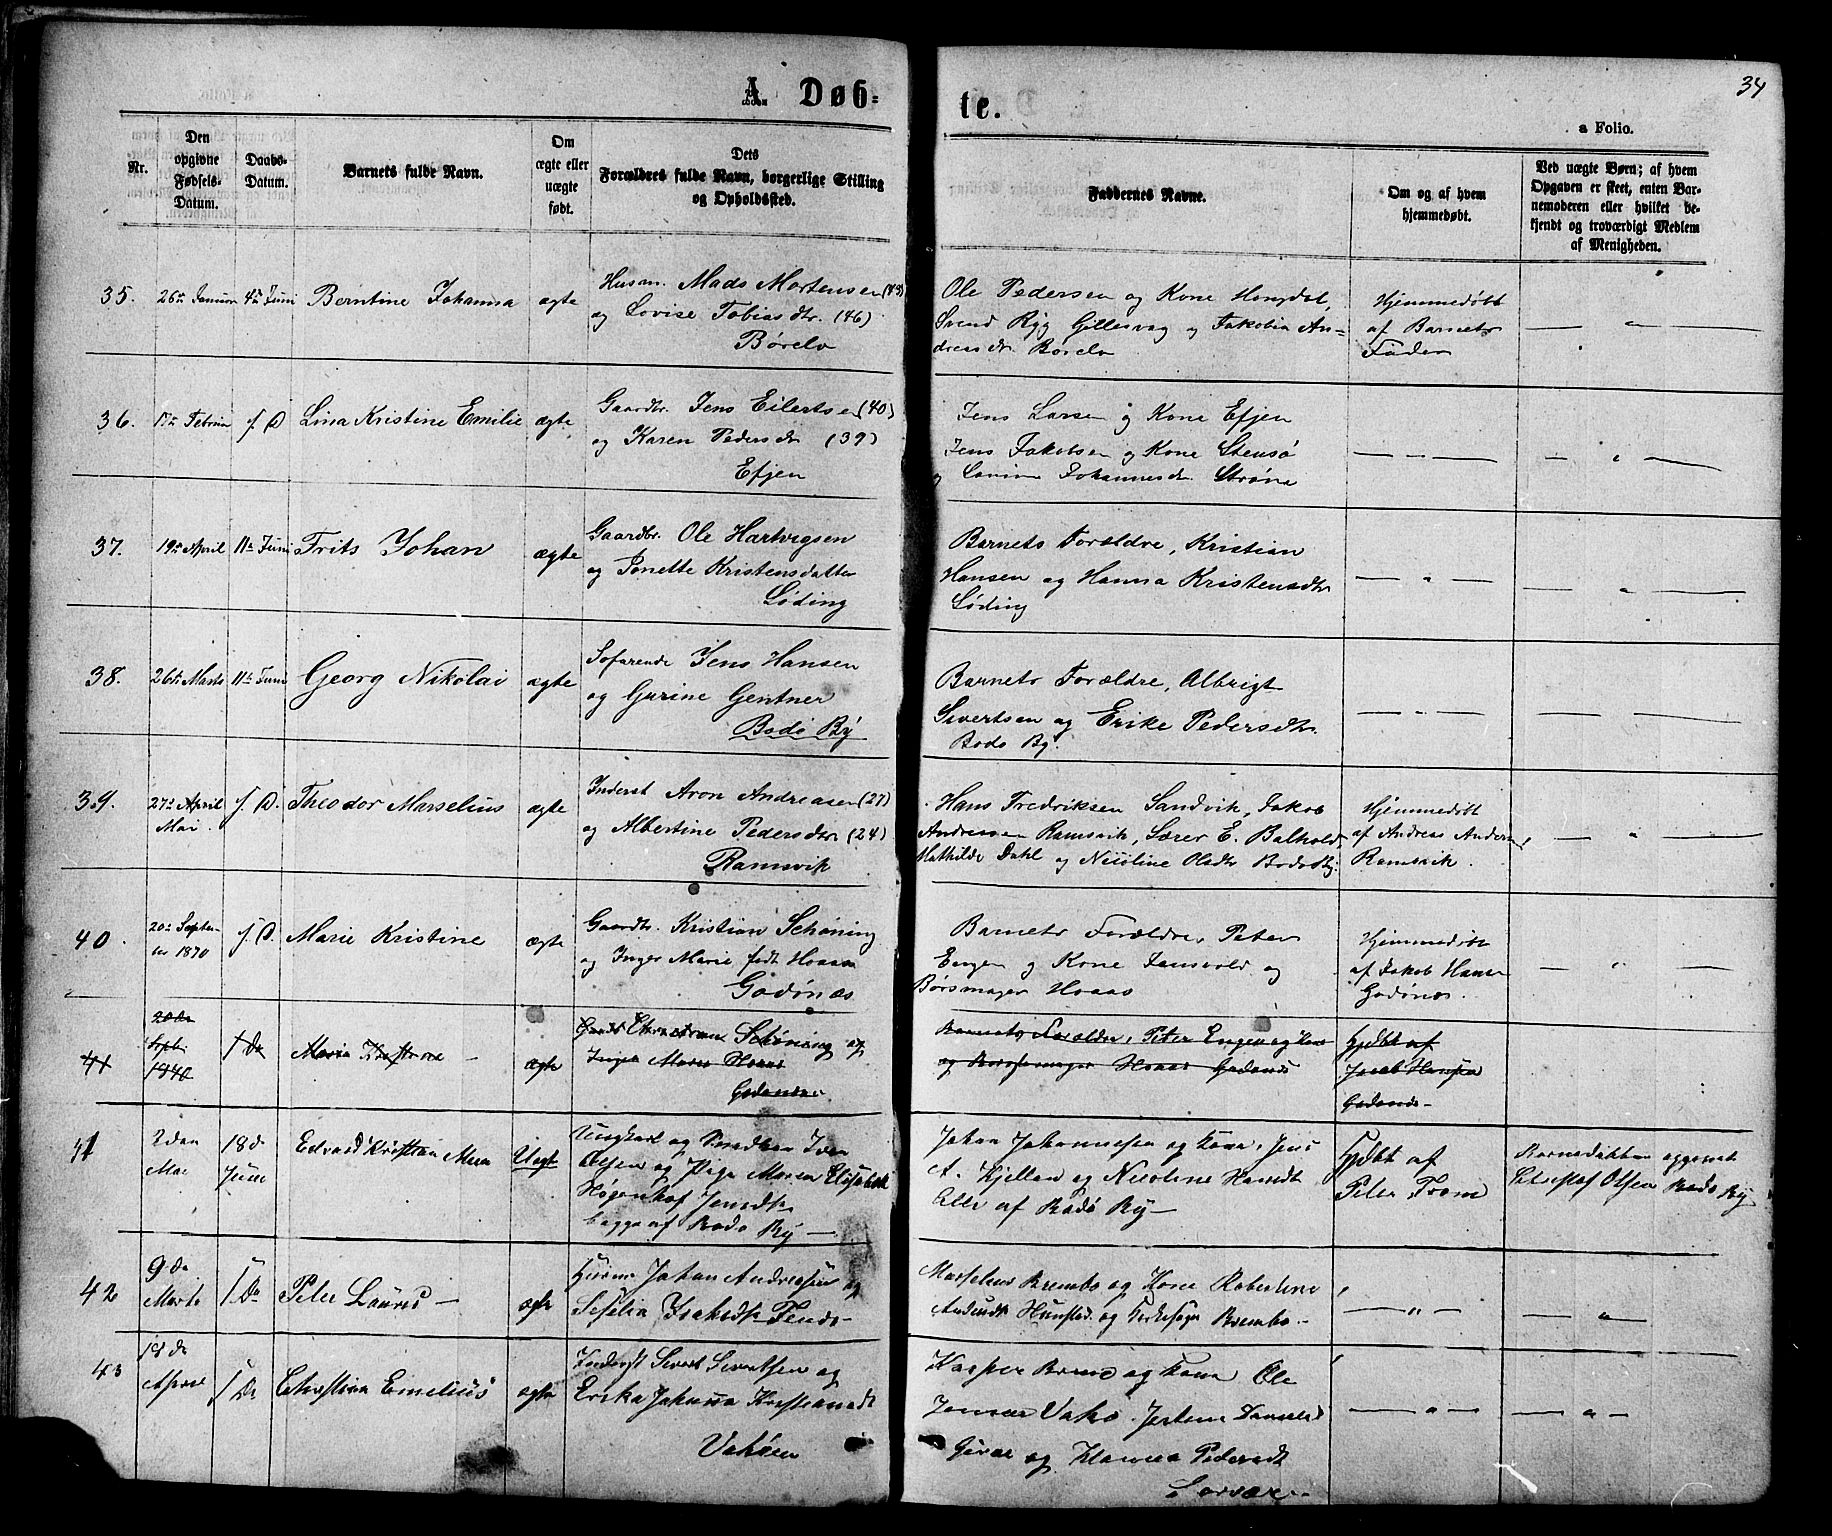 34
A Døb-
te.
a Folio.
Nr.
Den
opgivne
Fødsels-
Datum.
Daabs-
Datum.
Barnets fulde Navn.
Om
ægte eller
uægte
født.
Dets
Forældres fulde Navn, borgerlige Stilling
og Opholdssted.
Faddernes Navne.
Om og af hvem
hjemmedøbt.
Ved uægte Børn; af hvem
Opgaven er skeet, enten Bar-
nemoderen eller hvilket be-
kjendt og troværdigt Medlem
af Menigheden.
35.
26de Januar
4de Juni
Berntine Johanna
ægte
Husm. Mads Mortensen (43)
og Lovise Tobiasdtr. (46)
Børelv
Ole Pedersen og Kone Hongdal,
Svend Ryg Gillesvag og Jakobia An-
dreasdr. Børelv
Hjemmedøbt
af Barnets
Fader
36.
17de Februar
s. D.
Lina Kristine Emilie
ægte
Gaardbr. Jens Eilertsen (40)
og Karen Pedersdr (39)
Efjen
Jens Larsen og Kone Efjen
Jens Jakobsen og Kone Stensø
og Johannesdr. Strøne
37.
19de April
11te Juni
Frits Johan
ægte
Gaardbr. Ole Hartvigsen
og Jonette Kristensdatter
Løding
Barnets Forældre, Kristian
Hansen og Hanna Kristensdtr
Løding
38.
26de Marts
11te Juni
Georg Nikolai
ægte
Søfarende Jens Hansen
og Gurine Gentner
Bodø By
Barnets Forældre, Albrigt
Sivertsen og Erike Pedersdtr.
Bodø By.
39.
27de April
Mai.
s. D.
Theodor Marselius
ægte
Inderst Aron Andreasen (27)
og Albertine Pedersdtr (24)
Ramsvik
Hans Fredriksen Sandvik, Jakob
Andreasen Ramsvik, Sører E. Balhold,
Mathilde Dahl og Nicoline Olsdtr Bodøby.
Hjemmedøbt
af Andreas Anders
Ramsvik.
40.
20de Septem-
ber 1870
s. D.
Marie Kristine
ægte
Gaardbr. Kristian Schøning
og Inger Marie født Hoaas
Godønæs
Barnets Forældre, Peter
Engen og Kone Jensvold og
Børsmager Hoaas
Hjemmedøbt
af Jakob Hansen
Godønes.
41
20de
Septbr
1870
s. D
Maria Kristine
ægte
Gaardbr Christian Schöning og
Inger Marie Hoaas
Godønæs
Barnets Forældre, Peter Engen og Kone
og Børsmager Hoaas Godønæs
Hjdøbt af
Jacob Hansen
Godønæs
41
2den
Mai
18de
Juni
Edvard Kristian
Uægt
Ungkarl og Iver
Olsen og Pige Maren Elisabeth
Jensdtr
begge af Bodø By
Johan Johannesen og Kone, Jens
A. Kjelland og Nicoline Hansdt
Alle af Bodø By
Hjdøbt af
Peter From
opgivet
Christof Olsen Bodø By
42
9de
Marts
s. D.
Peter Laurits
ægte
Husm. Johan Andreasen og
Sefelia Isaksdtr
Marselius Brembo og Kone Robertine
Andersdtr Hunstad og Brembo
43
18de
April
s. D.
Christian Emelius
ægte
Inderst Sivert Sivertsen og
Erika Johanna Kristiansdt
Kasper og Kone Ole
Jensen
og Hanna Pedersdt